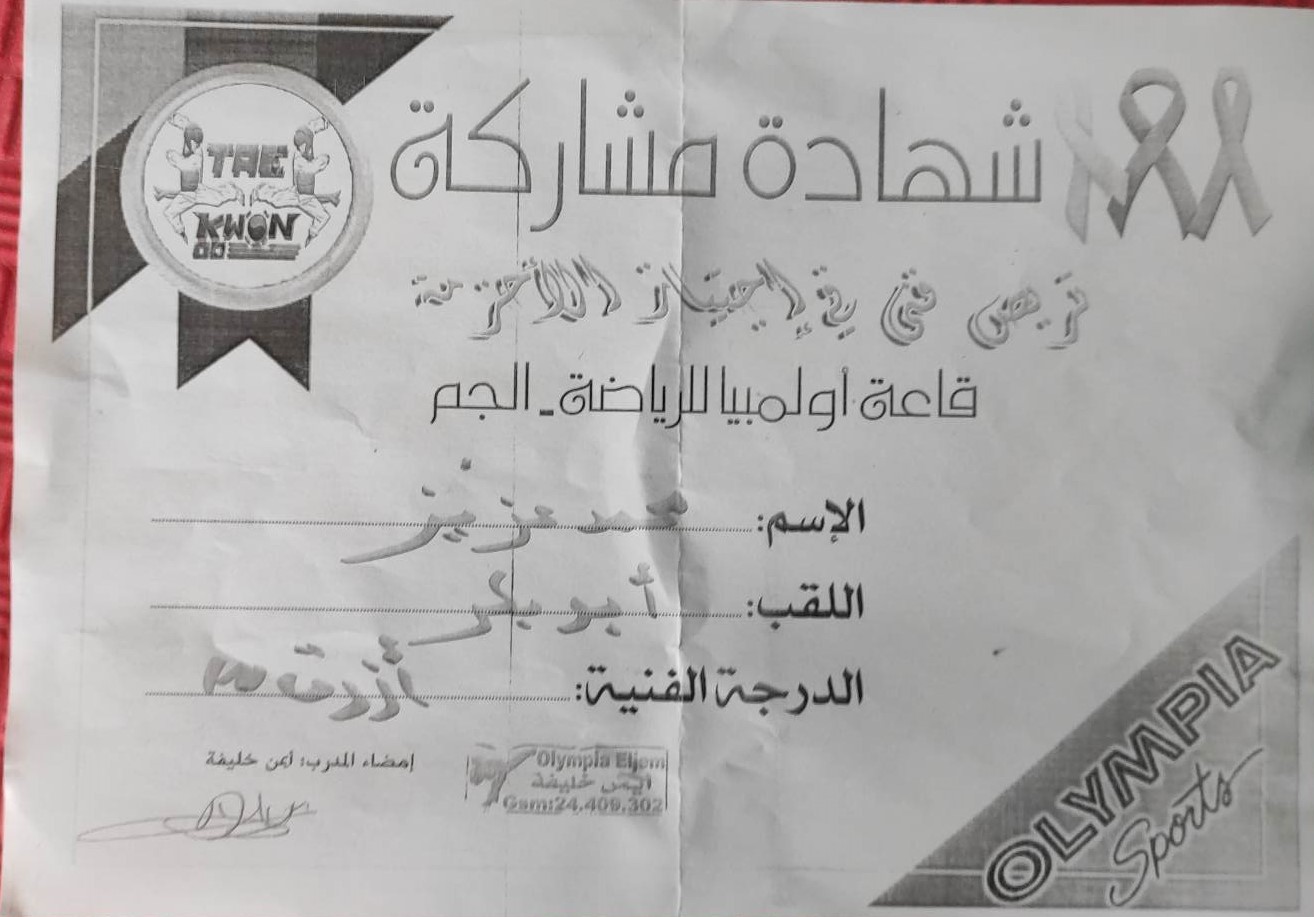 TAE
KWON
DO
شهادة مشاركة
تربص فني في إجتياز الأحزمة
قاعة أولمبيا للرياضة - الجم
الإسم: محمد عزيز
اللقب: أبو بكر
الدرجة الفنية: أزرق
إمضاء المدرب: أيمن خليفة
Olympia Eljem
أيمن خليفة
Gsm:24.409.302
OLYMPIA
Sports